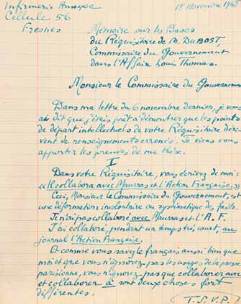 Infirmerie Annexe
Cellule 56
Fresnes
17 Novembre 1945
Mémoire sur les Bases
du Réquisitoire de M. DUBOST
Commissaire du Gouvernement
dans l'Affaire Louis Thomas.
Monsieur le Commissaire du Gouvernement
Dans ma lettre du 6 novembre dernier, je vous
ai dit que j'étais prêt à démontrer que les points
de départ intellectuels de votre Réquisitoire
de renseignements erronés. Je viens vous
apporter les preuves de ma thèse.
I
Dans votre Réquisitoire, vous écrivez de moi :
"il collabora avec Maurras et l'Action Française."
Ceci, Monsieur le Commissaire du Gouvernement, est
une déformation involontaire ou systématique des faits.
Je n'ai pas collaboré avec Maurras et l'A. F.
J'ai collaboré, pendant un temps très court, au
journal l'Action Française.
Et comme vous savez le français aussi bien que
moi et que vous n'ignorez pas les
, vous n'ignorez pas que collaborer avec
et collaborer à sont deux choses fort
différentes.
T.S.V.P.